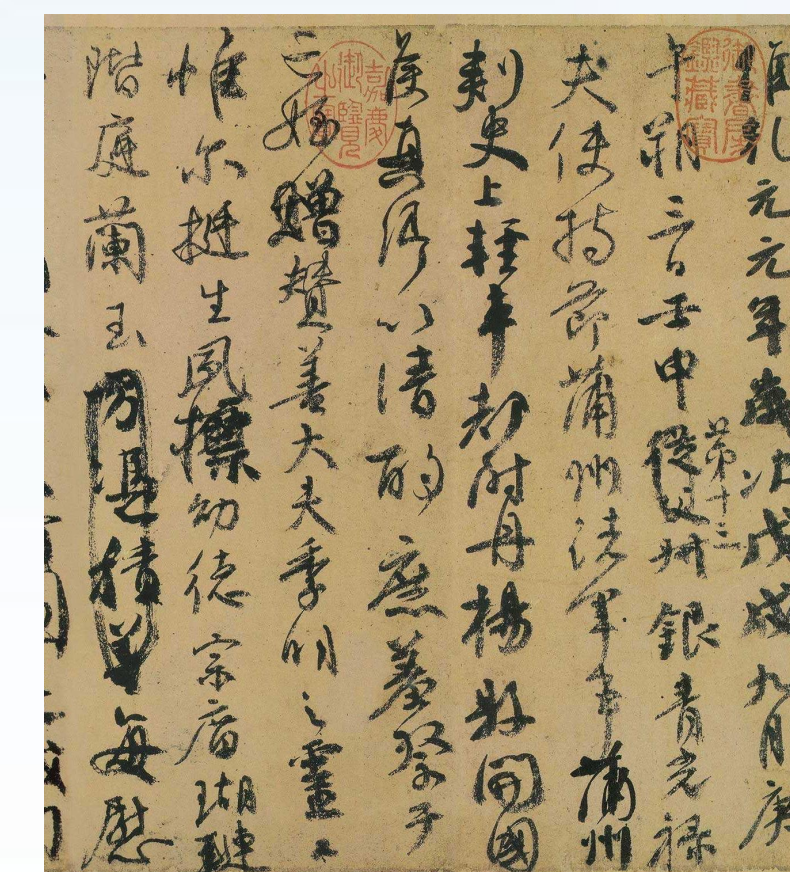 維乾元元年歲次戊戌九月庚
午朔三日壬申第十三從父叔銀青光祿
夫使持節蒲州諸軍事蒲州
刺史上輕車都尉丹楊縣開國
侯真卿以清酌庶羞祭于
亡姪贈贊善大夫季明之靈曰
惟尔挺生夙標幼德宗廟瑚璉
階庭蘭玉方憑積善每慰
御書房鑑藏寶
嘉慶御覽之寶